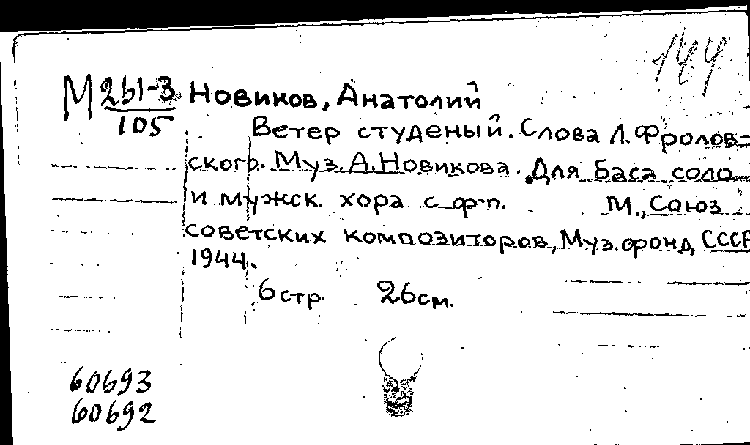 144
М 261-3 Новиков, Анатолий
105
Ветер студеный. Слова Л. Фролов-
ского. Муз. А. Новикова. Для баса соло
и мужск. хора с ф-п. М., Союз
советских композиторов, Муз. фонд СССР
1944.
6 стр. 26 см.
60693
60692